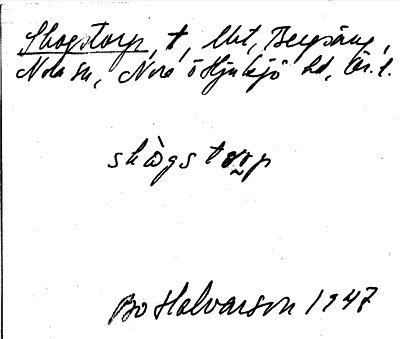 Skogstorp, t, lht, Bergsäng,
Nora sn, Nora o Hjulsjö hd, Ör. l.
skògstorp
Bo Halvarson 1947